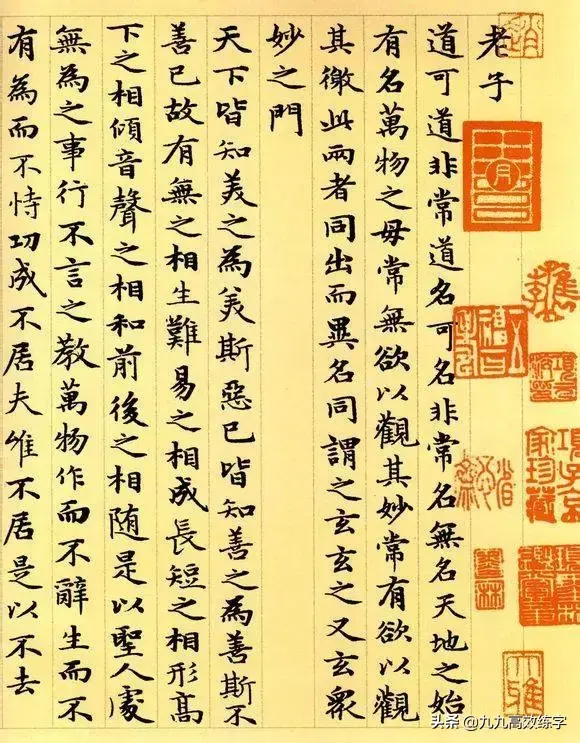 老子
道可道非常道名可名非常名無名天地之始
有名萬物之母常無欲以觀其妙常有欲以觀
其徼此兩者同出而異名同謂之玄玄之又玄眾
妙之門
天下皆知美之為美斯惡已皆知善之為善斯不
善已故有無之相生難易之相成長短之相形高
下之相傾音聲之相和前後之相随是以聖人處
無為之事行不言之教萬物作而不辭生而不
有為而不恃功成不居夫唯不居是以不去
項子京
家珍藏
墨林
头条 @九九高效练字